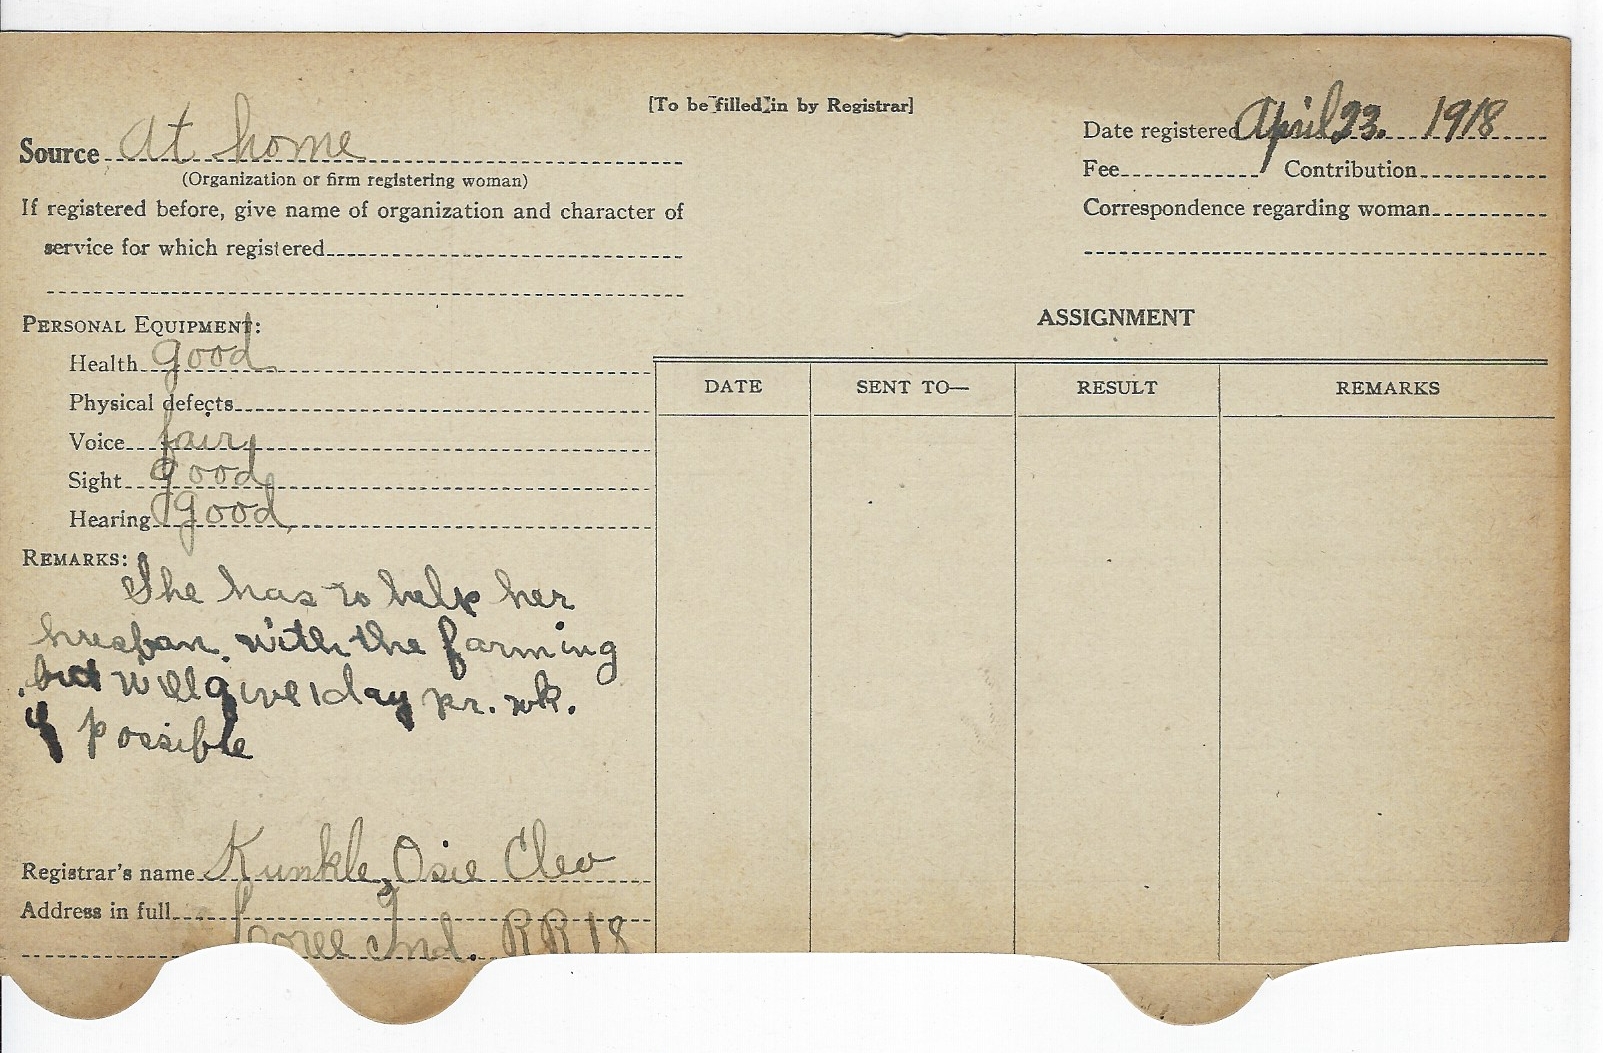 [To be filled in by Registrar]
Source at home
(Organization or firm registering woman)
If registered before, give name of organization and character of
service for which registered
Date registered April 23. 1918
Fee Contribution
Correspondence regarding woman
PERSONAL EQUIPMENT:
Health good
Physical defects
Voice fair
Sight good
Hearing good
REMARKS:
She has to help her
husban. with the farming
but will give 1 day pr. wk.
if possible
Registrar's name Kunkle, Osie Cleo
Address in full
Loree Ind. RR 18
ASSIGNMENT
DATE SENT TO— RESULT REMARKS